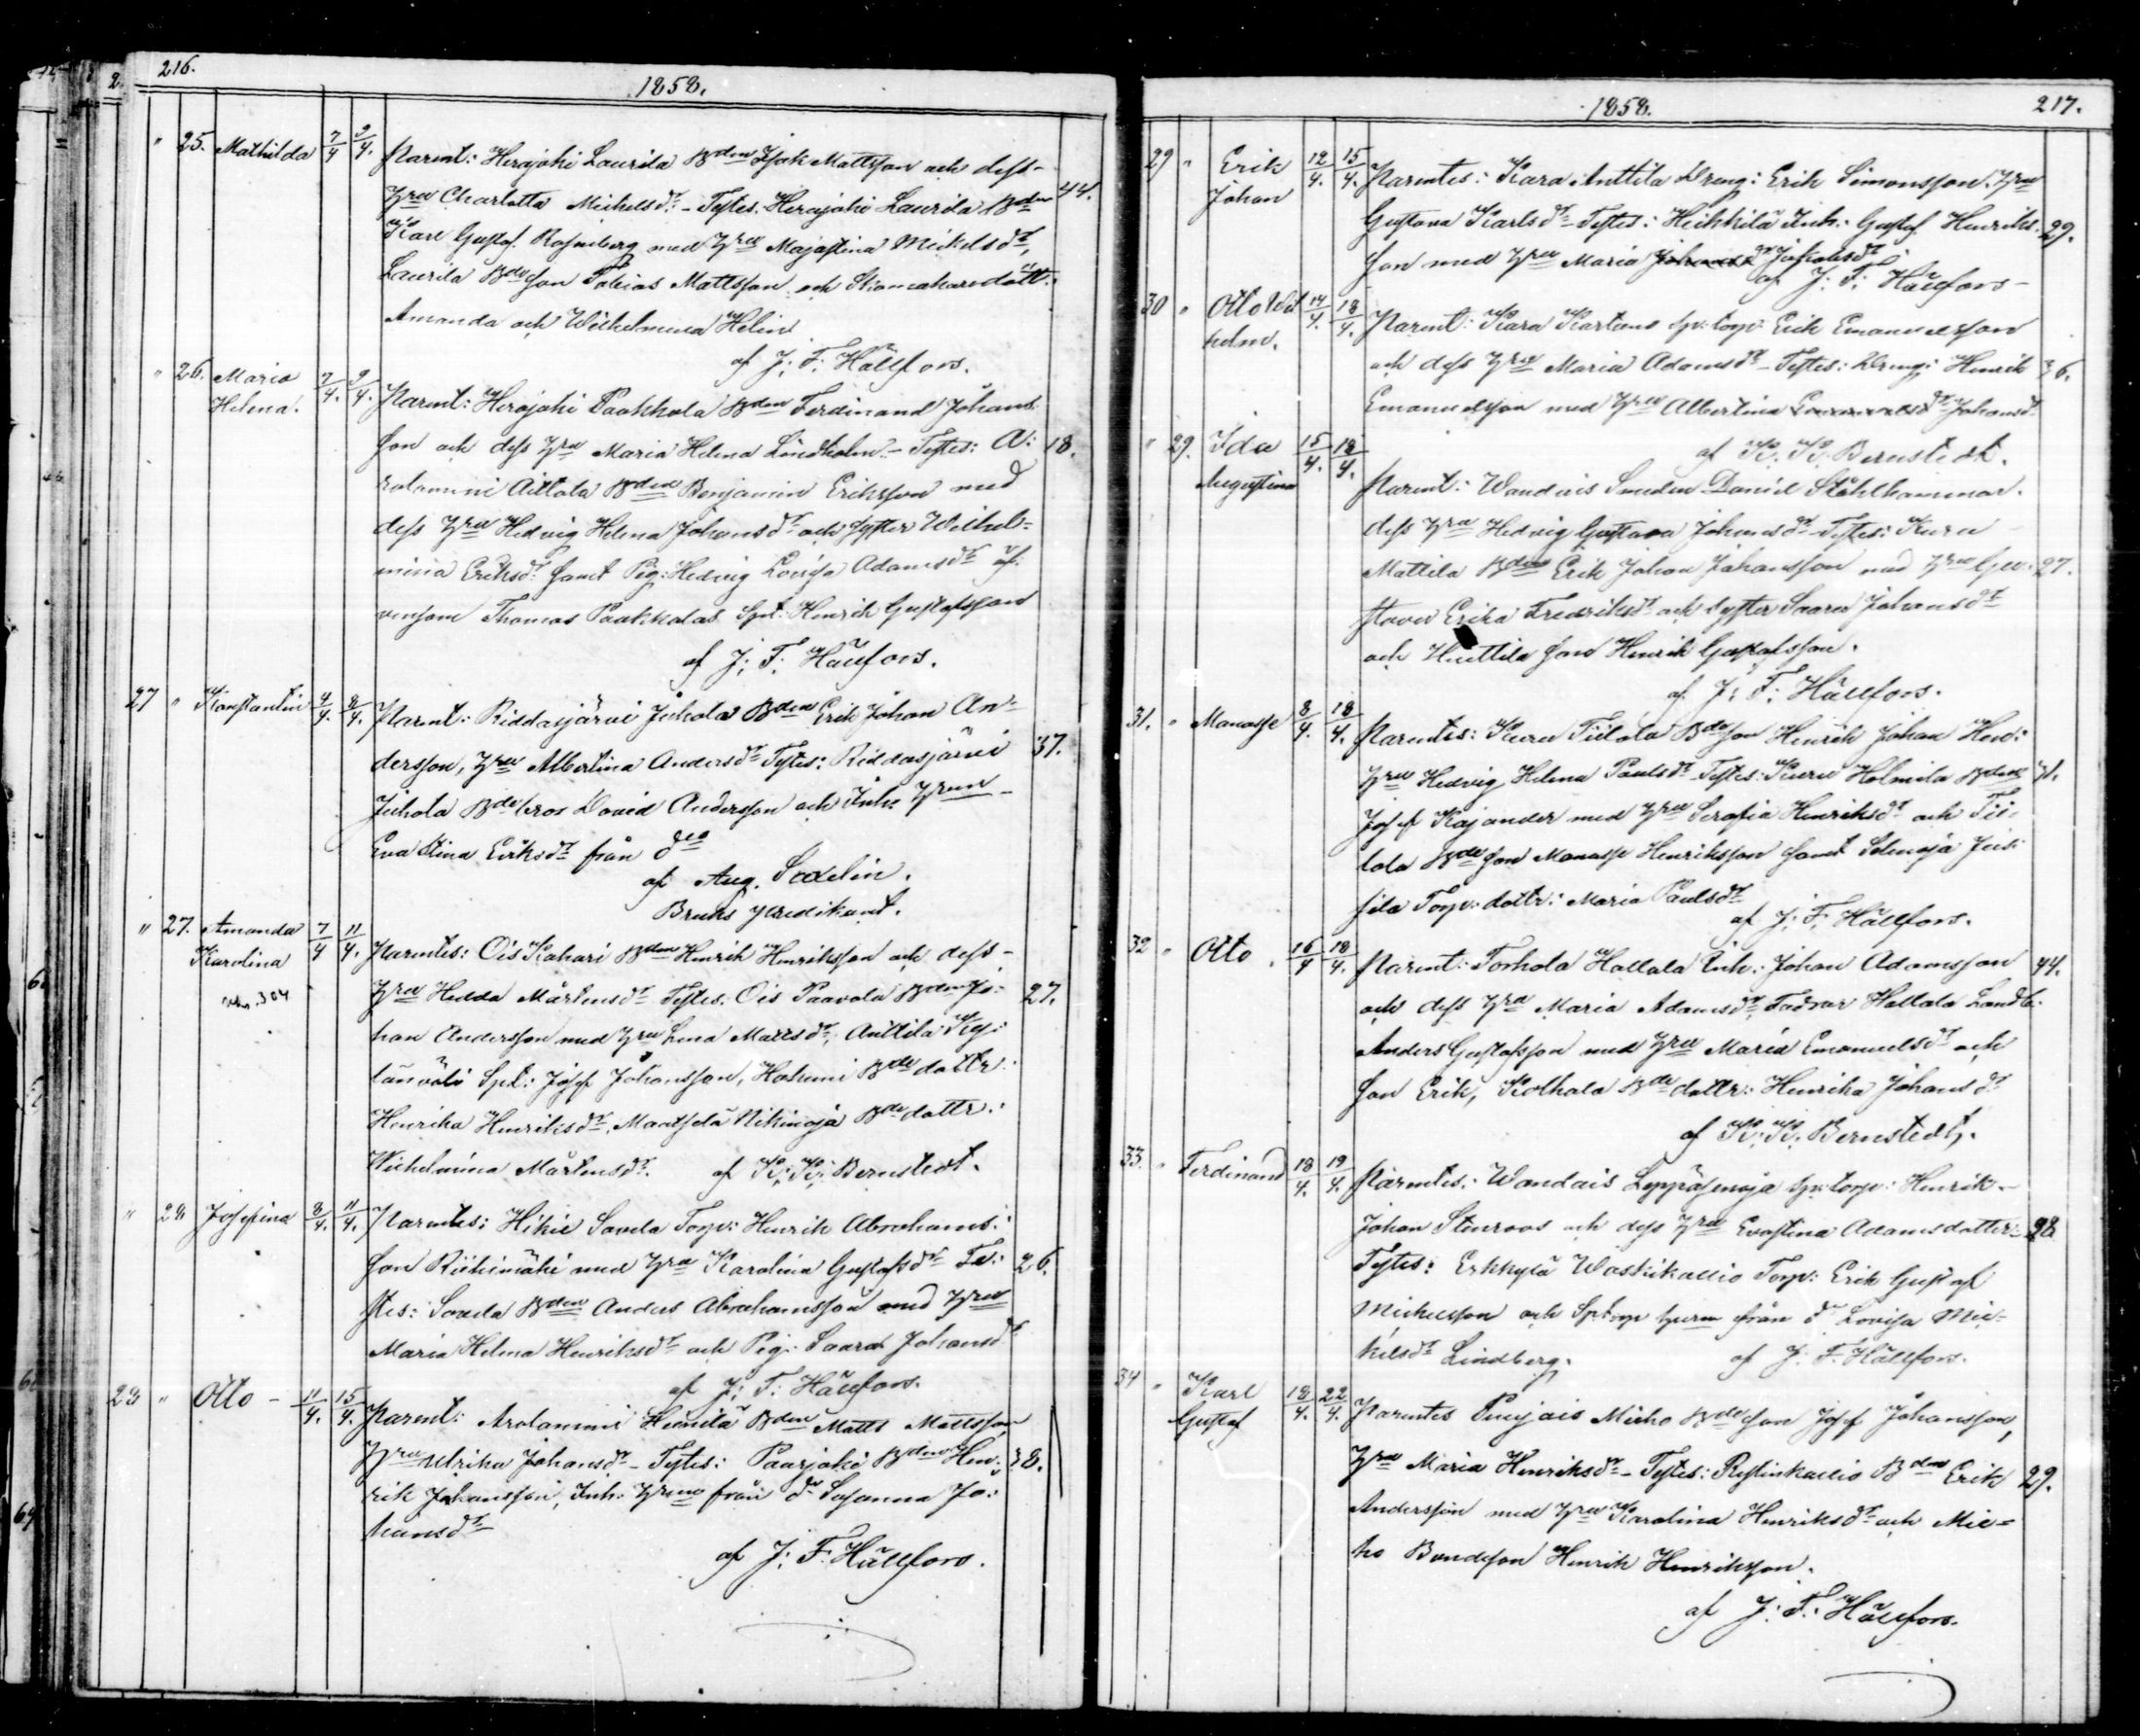 216.
1858.
" 25. Mathilda 7/4 9/4. Parent: Herajoki Laurila Bden Isak Mattsson och dess
hru Charlotta Michelsdr. - Testes. Herajoki Laurila Bden 44.
Karl Gustaf Rosenberg med hru Majastina Mickelsdr,
Laurila Bdeson Tobias Mattsson och Skomakaredöttr.
Amanda och Wilhelmina Helin
af J: F: Hällfors.
" 26. Maria Helena. 7/4. 9/4. Parent: Herajoki Paakkola Bden Ferdinand Johans
son och dess hru Maria Helena Lindholm - Testes: A: 18.
rolammi Aittola Bden Benjamin Eriksson med
dess hru Hedvig Helena Johansdr och syster Wilhel-
mina Eriksdr. samt Pig: Hedvig Lovisa Adamsdr äf-
vensom Thomas Paakkolas Spt: Henrik Gustafsson
af J: F: Hällfors.
27 " Konstantin 4/4. 8/4. Parent: Riddasjärvi Juhola Bden Erik Johan An-
dersson, hru Albertina Andersdr Testes: Riddasjärvi 37.
Juhola Bdebror David Andersson och Inhs hrun
Eva Stina Eriksdr från do
af Aug. Sadelin.
Bruks predikant.
" 27. Amanda Karolina 7/4 11/4. Parentes: Ois Kahari Bden Henrik Henriksson och dess
304
hru Hedda Mårtensdr Testes. Ois Paavola Bden Jo- 27.
han Andersson med hru Lena Mattsdr, Anttila
Spt: Josef Johansson, Hakuni Bde dottr:
Henrika Henriksdr, Mantselä Nikinoja Bde dottr:
Wilhelmina Mårtensdr. af K: K: Bernstedt.
" 28 Josefina 8/4. 11/4. Parentes: Hikiä Savela Torp: Henrik Abrahams:
son Riihimäki med hru Karolina Gustafsdr Te: 26.
stes: Savela Bden Anders Abrahamsson med hru
Maria Helena Henriksdr och Pig: Saara Johansdr
af J: F: Hällfors.
28 " Otto - 11/4. 15/4. Parent: Arolammi Heinilä Bden Matts Mattsson
hru Ulrika Johansdr - Testes: Paarjoki Bden Hen: 38.
rik Johansson, Inh. hrun från do Susanna Jo:
hansdr
af J: F: Hällfors.
1858.
217.
29 " Erik Johan 12/4. 15/4. Parentes: Kara Anttila Dreng: Erik Simonsson. hru
Gustava Karlsdr - Testes: Heikkilä Inh: Gustaf Henriks 29.
son med hru Maria Jakobsdr
af J: F: Hällfors -
30 " Otto Wilhelm. 14/4. 18/4. Parent: Kara Kartano Sp: torp: Erik Emanuelsson
och dess hru Maria Adamsdr - Testes: Dreng: Henrik 36.
Emanuelsson med hru Albertina Johansdr
af K: K: Bernstedt.
" 29. Ida Augustina 15/4. 18/4. Parent: Wandais Smeden Daniel Stålhammar.
dess hru Hedvig Gustava Johansdr - Testes: Kuru
Mattila Bden Erik Johan Johansson med hru Gu- 27.
stava Erika Fredriksdr och syster Saara Johansdr
och Huittila son Henrik Gustafsson.
af J: F: Hällfors.
31. " Manasse 8/4. 18/4. Parentes: Kuru Tiilola Bdeson Henrik Johan Hen:
hru Hedvig Helena Paulsdr Testes: Kuru Holmila Bden 31.
Josef Kajander med hru Serafia Henriksdr och Tii-
lola Bdeson Manasse Henriksson samt Selmoja Jus-
sila Torp: dottr: Maria Paulsdr
af J: F: Hällfors.
32 " Otto. 16/4 18/4. Parent: Torhola Hallala Inh.: Johan Adamsson 44.
och dess hru Maria Adamsdr, Fadrar Hallala Landb.
Anders Gustafsson med hru Maria Emanuelsdr och
son Erik, Kolhala Bde dottr: Henrika Johansdr
af K: K: Bernstedt.
33. " Ferdinand 18/4. 19/4. Parentes: Wandais Leppäsenoja Sp: torp: Henrik
Johan Stenroos och dess hru Evastina Adamsdotter - 28.
Testes: Erkkylä Waskikallio Torp: Erik Gustaf
Michelsson och Sptorp hurn från do Lovisa Mic-
kelsdr Lindberg. af J. F. Hällfors.
34 " Karl Gustaf 18/4. 22/4. Parentes Puujais Mikko Bdeson Josef Johansson,
hru Maria Henriksdr - Testes: Ristinkallio Bden Erik 29.
Andersson med hru Karolina Henriksdr och Mik-
ko Bondeson Henrik Henriksson.
af J: F: Hällfors.